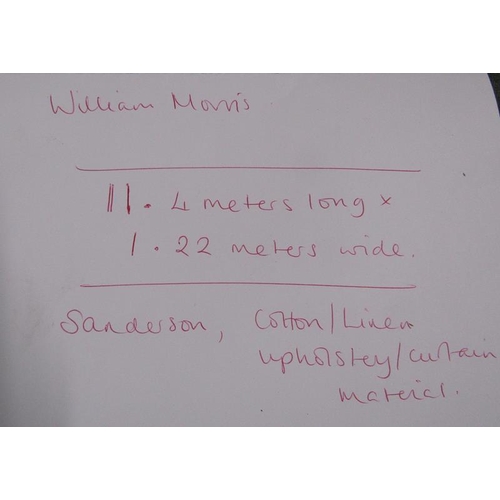 William Morris
11.4 meters long x
1.22 meters wide.
Sanderson, Cotton/Linen
upholstey/curtain
material.